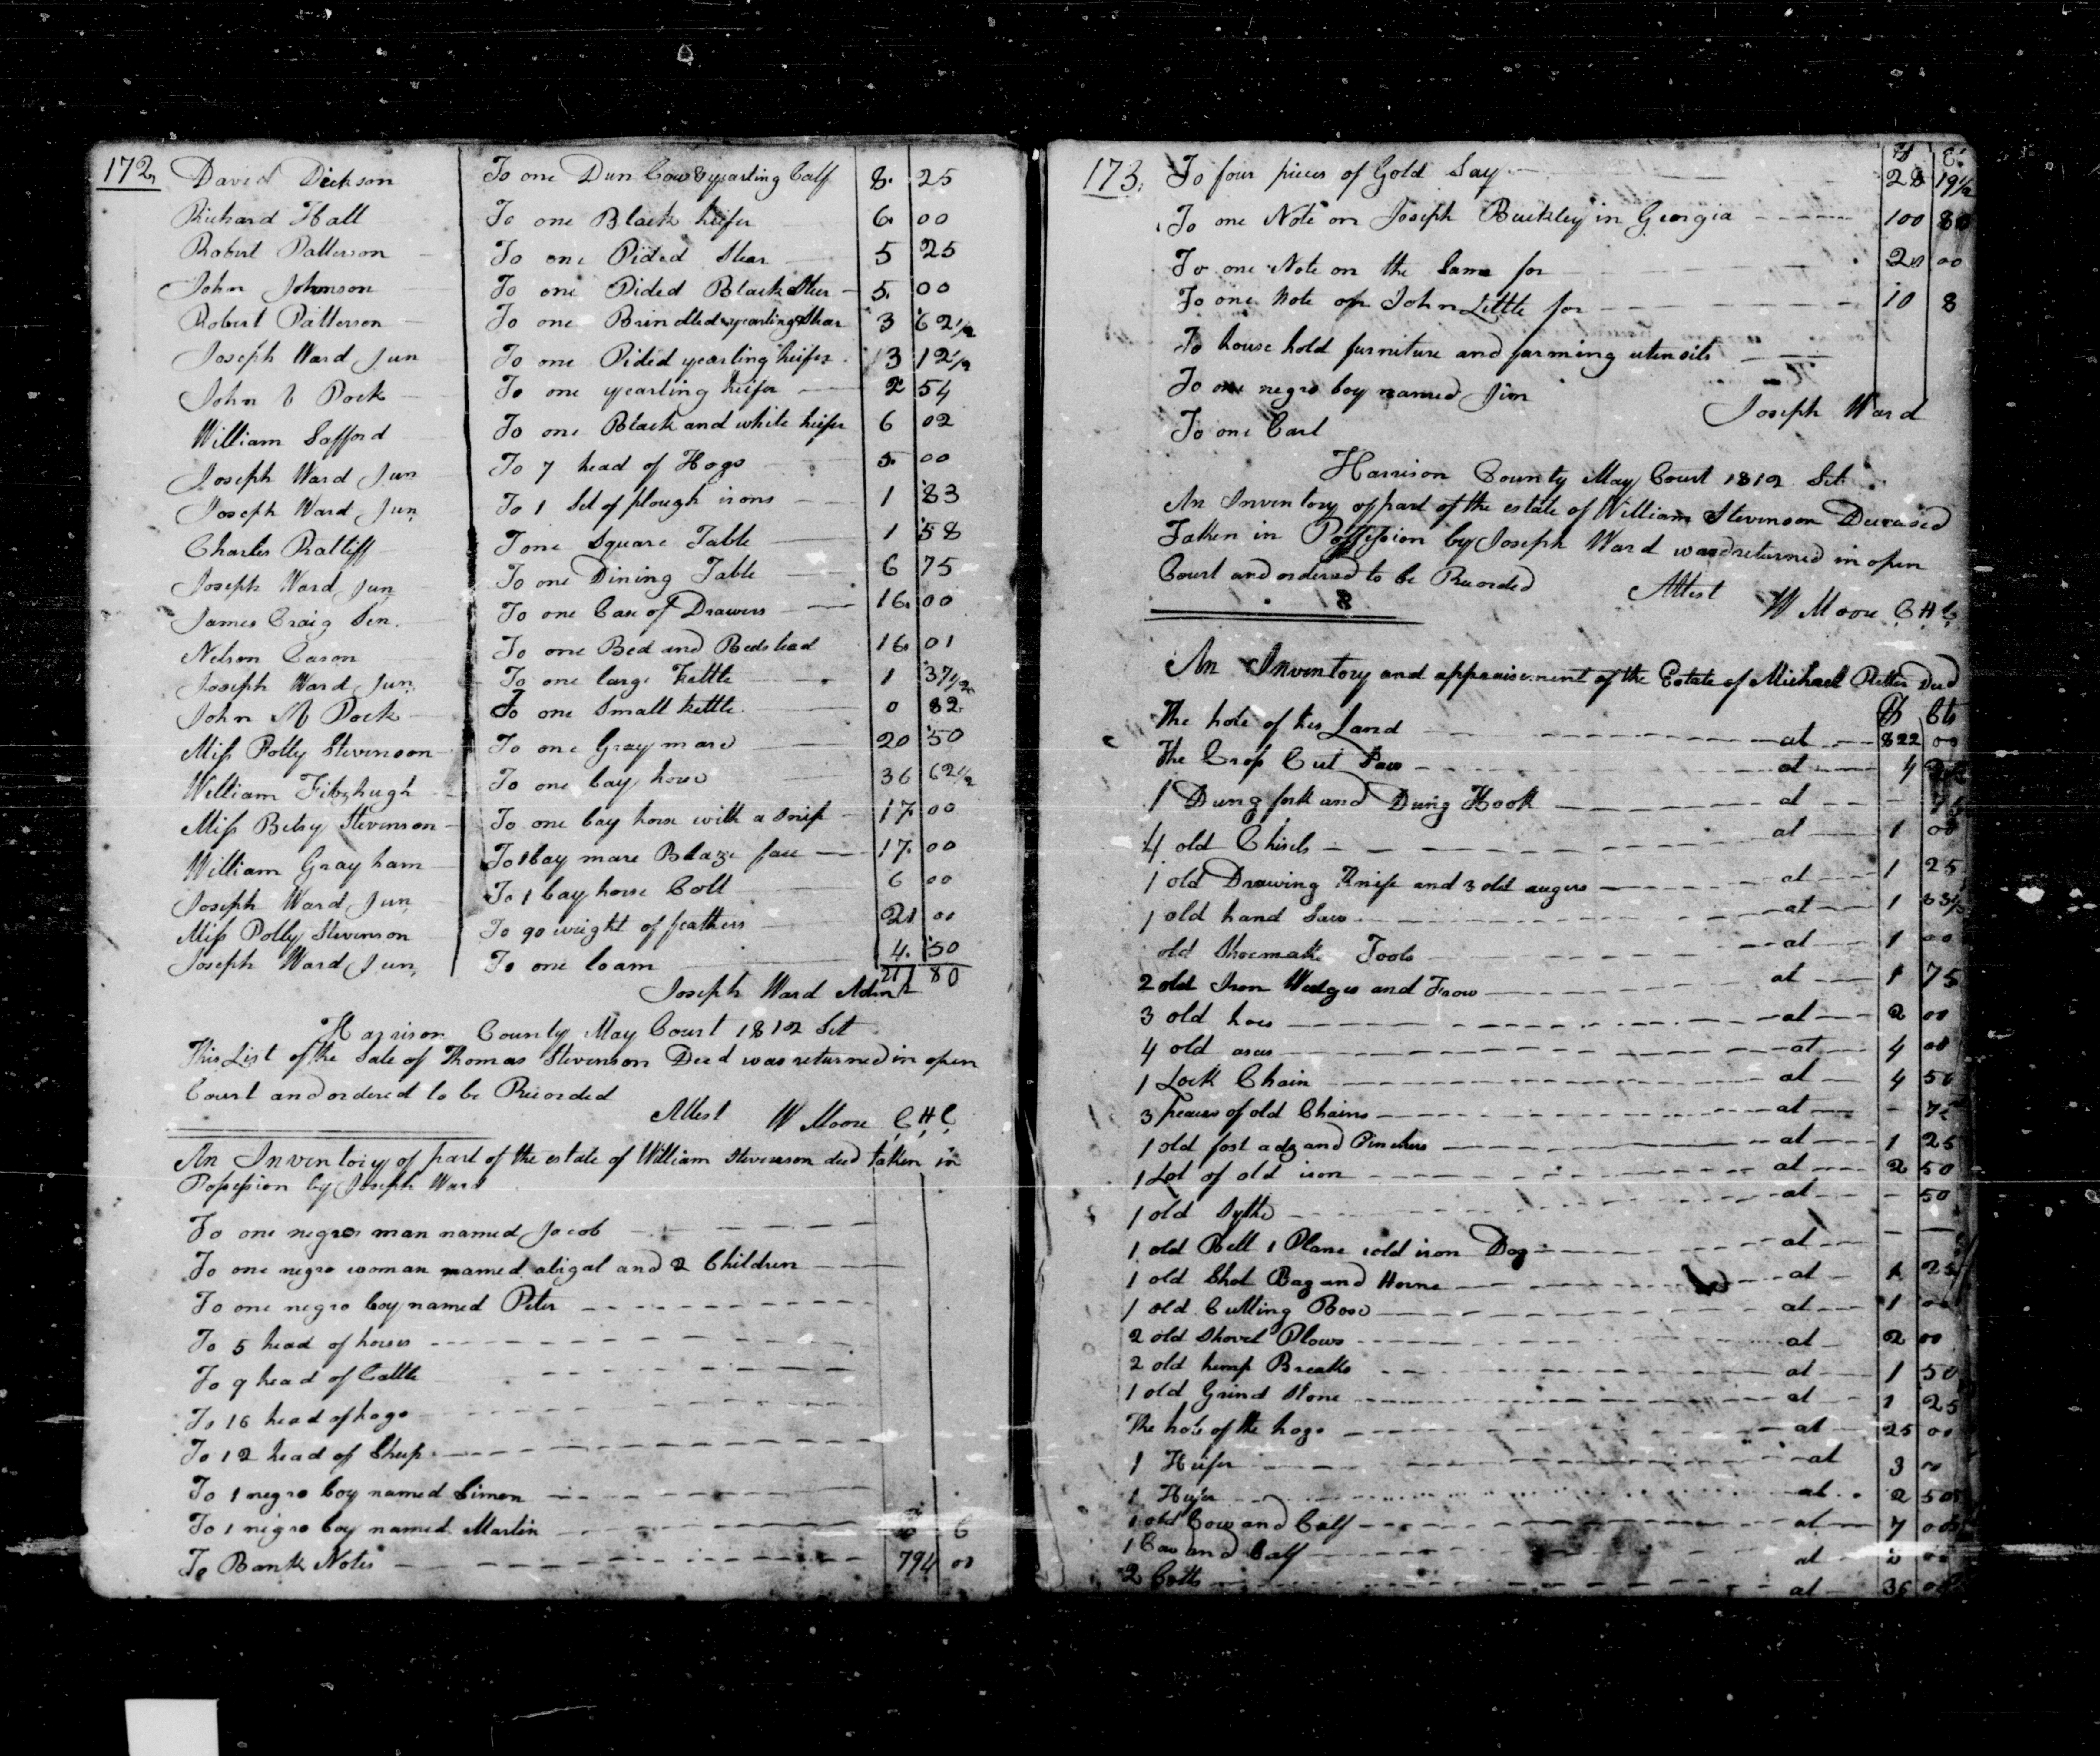 172,
David Dickson To one Dun Cow & yearling Calf 8. 25
Richard Hall To one Black heifer 6. 00
Robert Patterson To one Pided Stear 5 25
John Johnson To one Pided Black Steer 5. 00
Robert Patterson To one Brindled yearling Stear 3 62 1/2
Joseph Ward Jun To one Pided yearling heifer 3 12 1/2
John Pock To one yearling heifer 2 54
William Safford To one Black and white heifer 6 02
Joseph Ward Jun To 7 head of Hogs 5. 00
Joseph Ward Jun To 1 Set of plough irons 1 83
Charles Ratliff T one Square Table 1 58
Joseph Ward Jun To one Dining Table 6 75
James Craig Sen. To one Case of Drawers 16. 00
Nelson Cason To one Bed and Bedstead 16. 01
Joseph Ward Jun. To one large Kettle 1 37 1/2
John M Pock To one Small kettle 0 82
Miss Polly Stevenson To one Gray mare 20 50
William Fitzhugh To one bay horse 36 62 1/2
Miss Betsy Stevenson To one bay horse with a snip 17. 00
William Grayham To 1 bay mare Blaze face 17. 00
Joseph Ward Jun To 1 bay horse Colt 6 00
Miss Polly Stevenson To 90 weight of feathers 21 00
Joseph Ward Jun, To one loam 4. 50
Joseph Ward Admr 211 80
Harrison County May Court 1812 Sct
This List of the Sale of Thomas Stevenson Decd was returned in open
Court and ordered to be Recorded
Attest W Moore C H C
An Inventory of part of the estate of William Stevenson decd taken in
Possession by Joseph Ward
To one negro man named Jacob
To one negro woman named abigal and 2 Children
To one negro boy named Peter
To 5 head of horses
To 9 head of Cattle
To 16 head of hogs
To 12 head of Sheep
To 1 negro boy named Simon
To 1 negro boy named Martin
To Bank Notes 794 00
173, To four pieces of Gold Say 28 19 1/2
To one Note on Joseph Buckley in Georgia 100 80
To one Note on the Same for 20 00
To one Note on John Little for 10 8
To house hold furniture and farming utensils
To one negro boy named Jim
Joseph Ward
To one Cart
Harrison County May Court 1812 Sct
An Inventory of part of the estate of William Stevenson Deceased
Taken in Possession by Joseph Ward was returned in open
Court and ordered to be Recorded Attest
W Moore C H C
An Inventory and appraisement of the Estate of Michael Decd
$ Cts
The hole of his Land at 822 00
The Crop Cut Saw at 4
1 Dung fork and Dung Hook at - 75
4 old Chisels at 1 00
1 old Drawing Knife and 3 old augers at 1 25
1 old hand Saw at 1 33 1/3
old Shoemake Tools at 1 00
2 old Iron Wedges and Frow at 1 75
3 old hoes at 2 00
4 old axes at 4 00
1 Lock Chain at 4 50
3 peaces of old Chains at - 75
1 old foot adz and Pinchers at 1 25
1 Lot of old iron at 2 50
1 old Sythe at - 50
1 old Bell 1 Plane 1 old iron Dog at - -
1 old Shot Bag and Horne at 1 25
1 old Cutting Boxe at 1 00
2 old Shovel Plows at 2 00
2 old hemp Breaks at 1 50
1 old Grind Stone at 1 25
The hole of the hogs at 25 00
1 Heifer at 3 00
1 Heifer at 2 50
1 old Cow and Calf at 7 00
1 Cow and Calf at 00
2 Colts at 36 00